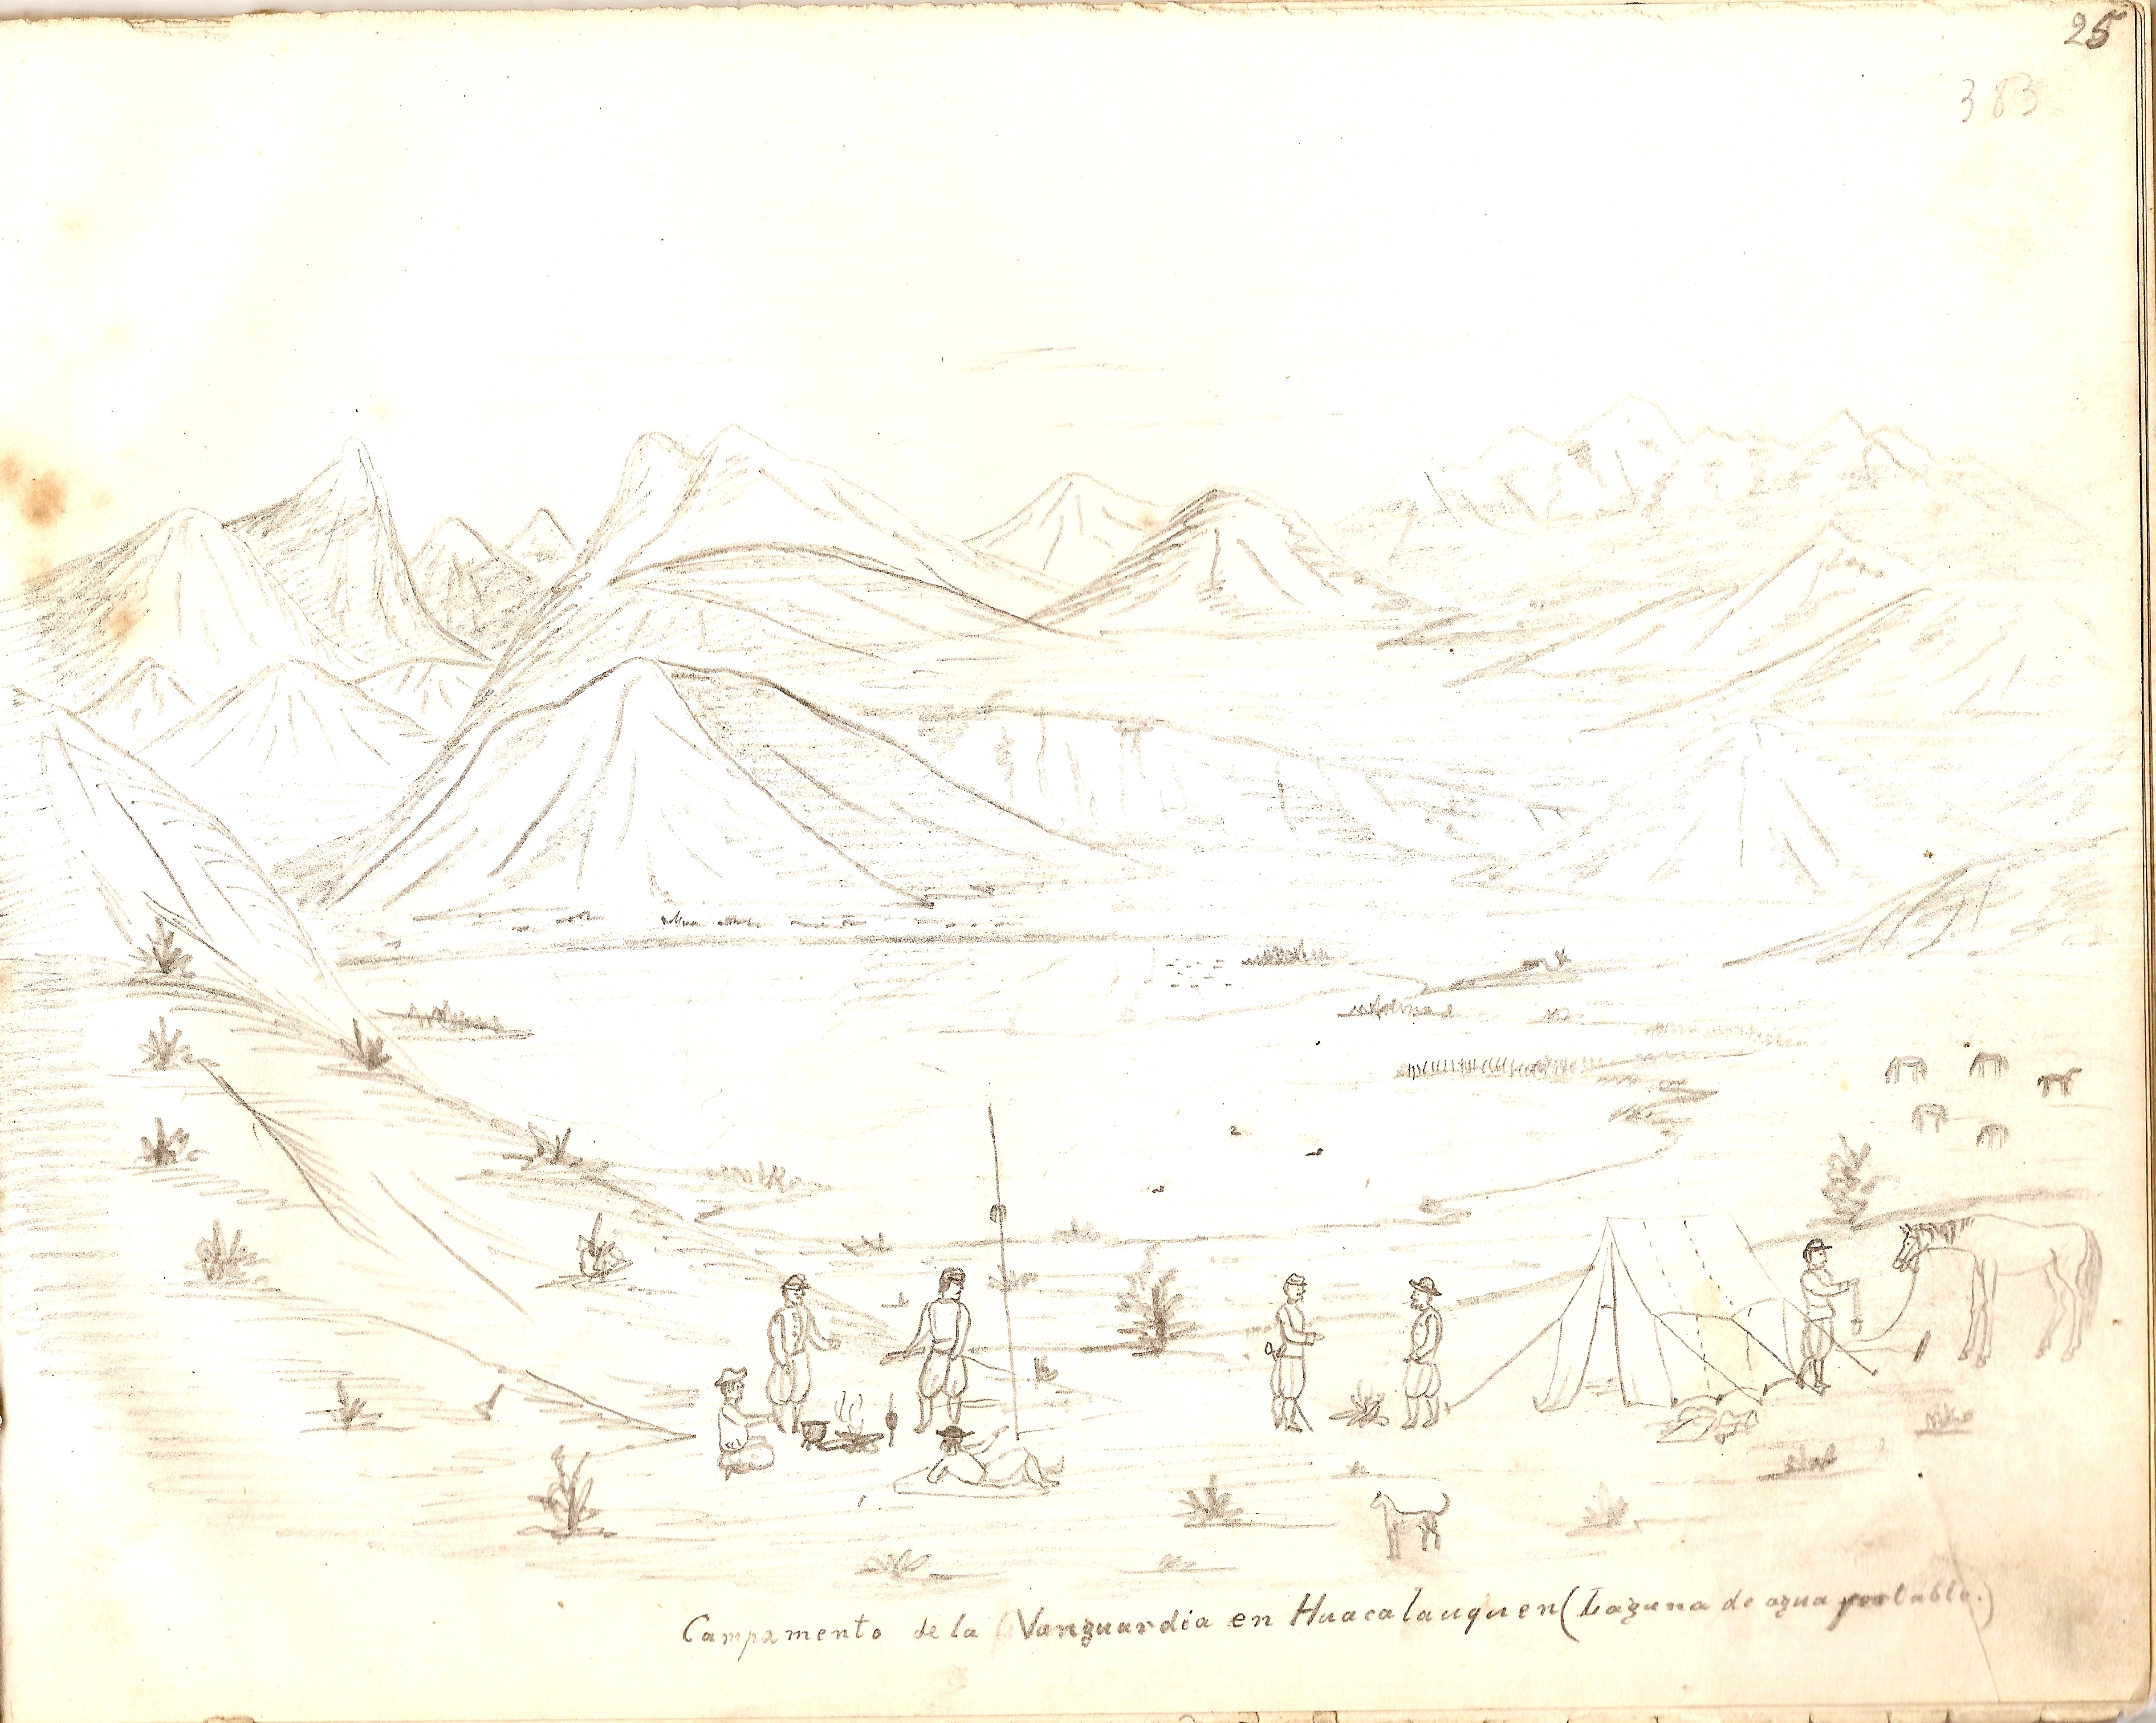 25
383
Campamento de la Vanguardia en Huacalauquen (Laguna de agua potable.)